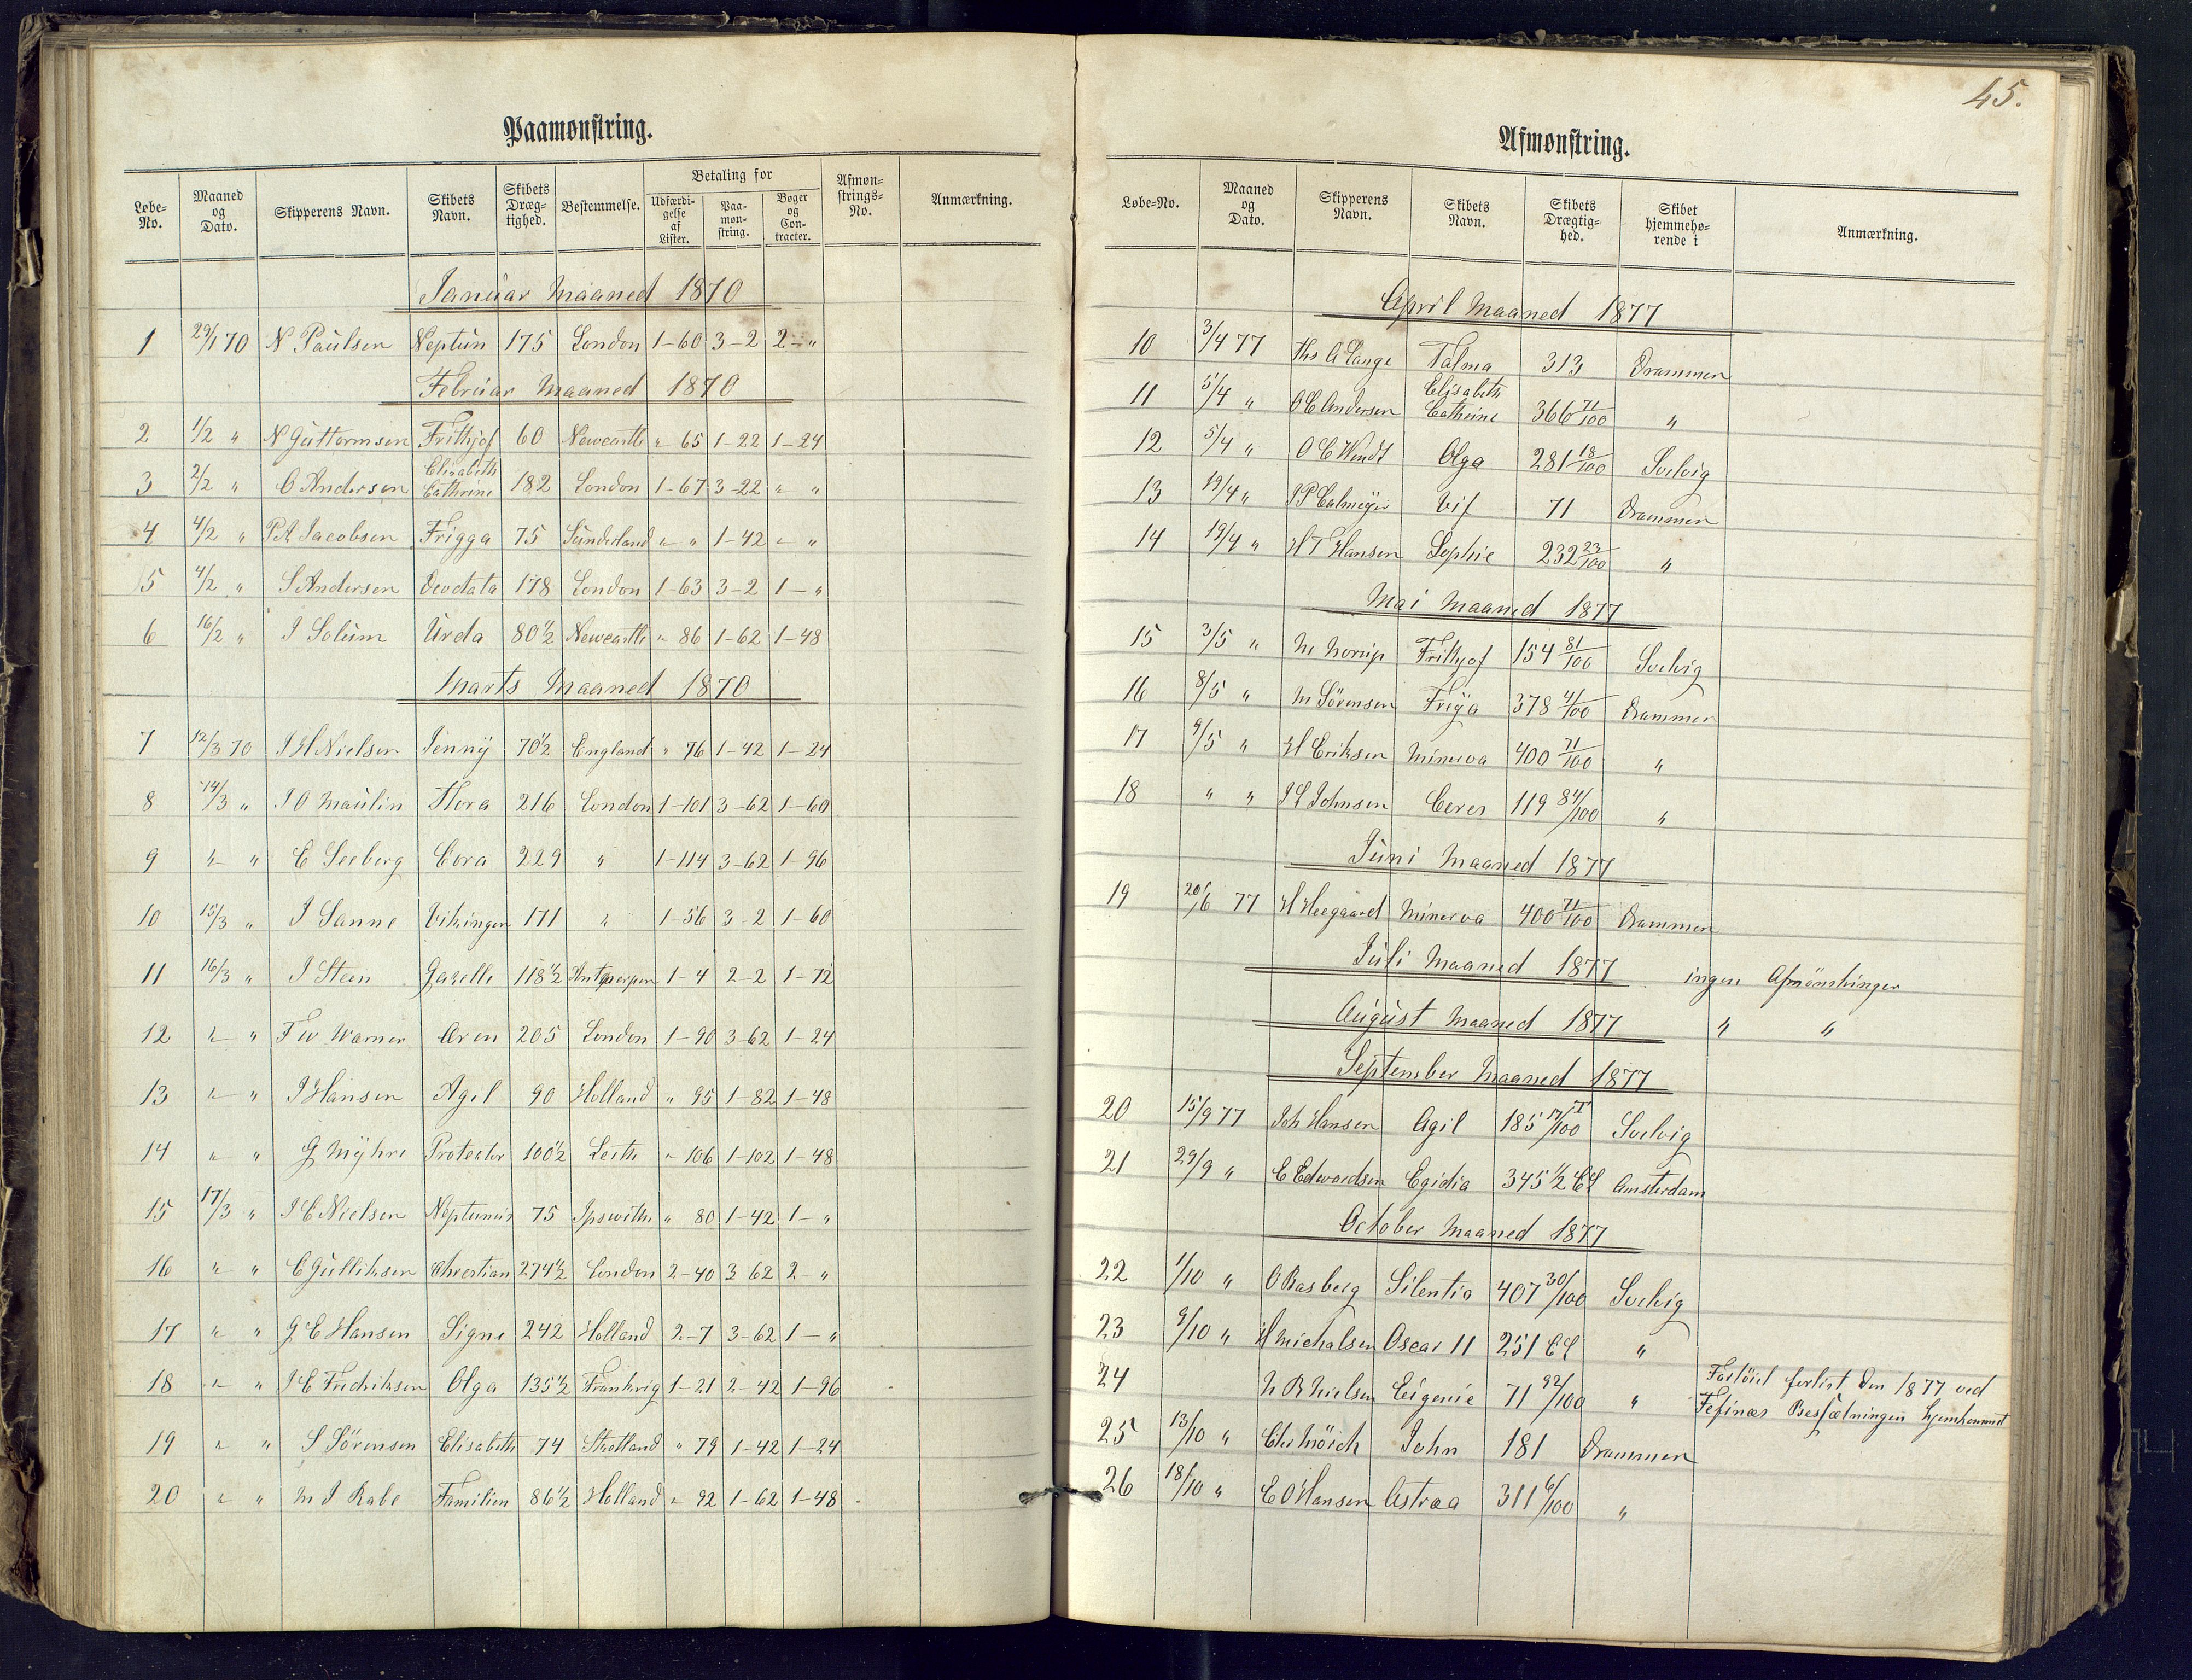 Paamønstring.
Løbe-No. | Maaned og Dato. | Skipperens Navn. | Skibets Navn. | Skibets Dræg-tighed. | Bestemmelse. | Betaling for | Udfærdi-gelse af Lister. | Paa-møn-string. | Bøger og Con-tracter. | Afmøn-strings-No. | Anmærkning.
Januar Maaned 1870
1 29/1 70 N Paulsen Neptun 175 London 1-60 3-2 2-"
Februar Maaned 1870
2 1/2 " N Guttormsen Frithjof 60 Newcastle " 65 1-22 1-24
3 2/2 " O Andersen Elisabeth Cathrine 182 London 1-67 3-22 " "
4 4/2 " P A Jacobsen Frigga 75 Sunderland " " 1-42 " "
5 4/2 " S Andersen Deodata 178 London 1-63 3-2 1-"
6 16/2 " J Solum Urda 80 1/2 Newcastle " 86 1-62 1-48
Marts Maaned 1870
7 12/3 70 J H Nielsen Jenny 70 1/2 England " 76 1-42 1-24
8 14/3 " J O Maulin Flora 216 London 1-101 3-62 1-60
9 " " E Seeberg Cora 229 " 1-114 3-62 1-96
10 15/3 " J Sanne Vikingen 171 " 1-56 3-2 1-60
11 16/3 " J Steen Gazelle 118 1/2 Antwerpen 1-4 2-2 1-72
12 " " F W Warner Ørnen 205 London 1-90 3-62 1-24
13 " " J Hansen Agil 90 Holland " 95 1-82 1-48
14 " " G Myhre Protector 100 1/2 Leith " 106 1-102 1-48
15 17/3 " J C Nielsen Neptunus 75 Ipswith " 80 1-42 1-"
16 " " C Gulliksen Christian 274 1/2 London 2-40 3 62 2-"
17 " " G E Hansen Signe 242 Holland 2-7 3-62 1-"
18 " " J C Fredriksen Olga 135 1/2 Frankrig 1-21 2-42 1-96
19 " " S Sörensen Elisabeth 74 Skotland " 79 1-42 1-24
20 " " M J Rabe Familien 86 1/2 Holland " 92 1-62 1-48
45.
Afmønstring.
Løbe-No. | Maaned og Dato. | Skipperens Navn. | Skibets Navn. | Skibets Drægtig-hed. | Skibet hjemmehø-rende i | Anmærkning.
April Maaned 1877
10 3/4 77 Ths A Lange Talma 313 Drammen
11 5/4 " O C Andersen Elisabeth Cathrine 366 71/100 "
12 5/4 " O C Wendt Olga 281 18/100 Svelvig
13 19/4 " J P Calmeyer Vif 71 Drammen
14 19/4 " H T Hansen Sophie 232 23/100 "
Mai Maaned 1877
15 3/5 " M Morup Frithjof 154 81/100 Svelvig
16 8/5 " M Sörensen Friya 378 41/100 Drammen
17 9/5 " H Eriksen Minerva 400 71/100 "
18 " " J C Johnsen Ceres 119 84/100 "
Juni Maaned 1877
19 20/6 77 H Heegaard Minerva 400 71/100 Drammen
Juli Maaned 1877 ingen Afmönstringer
August Maaned 1877 " "
September Maaned 1877
20 15/9 77 Joh Hansen Agil 185 17/100 T Svelvig
21 29/9 " E Edwardsen Egidia 345 1/2 CL Amsterdam
October Maaned 1877
22 1/10 " O Basberg Silentio 407 30/100 Svelvig
23 9/10 " H Michalsen Oscar II 251 CL "
24 N B Nielsen Eugenie 71 92/100 " Fartöiet forlist den 1877 ved Besætningen hjemkommet
25 13/10 " Chr Mörch John 181 Drammen
26 18/10 " E O Hansen Astræa 311 6/100 "